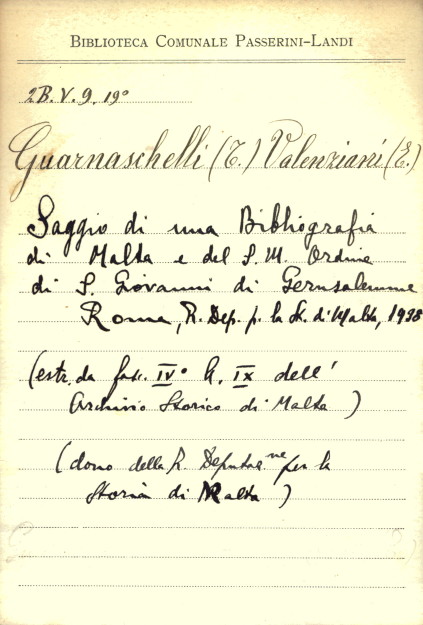 BIBLIOTECA COMUNALE PASSERINI-LANDI
2B. V. 9. 19°
Guarnaschelli (T.) Valenziani (E.)
Saggio di una Bibliografia
di Malta e del S. M. Ordine
di S. Giovanni di Gerusalemme
Roma, R. Dep. p. la St. di Malta, 1938
(estr. da fasc. IV° A. IX dell'
Archivio Storico di Malta)
(dono della R. Deputaz.ne per la
Storia di Malta)